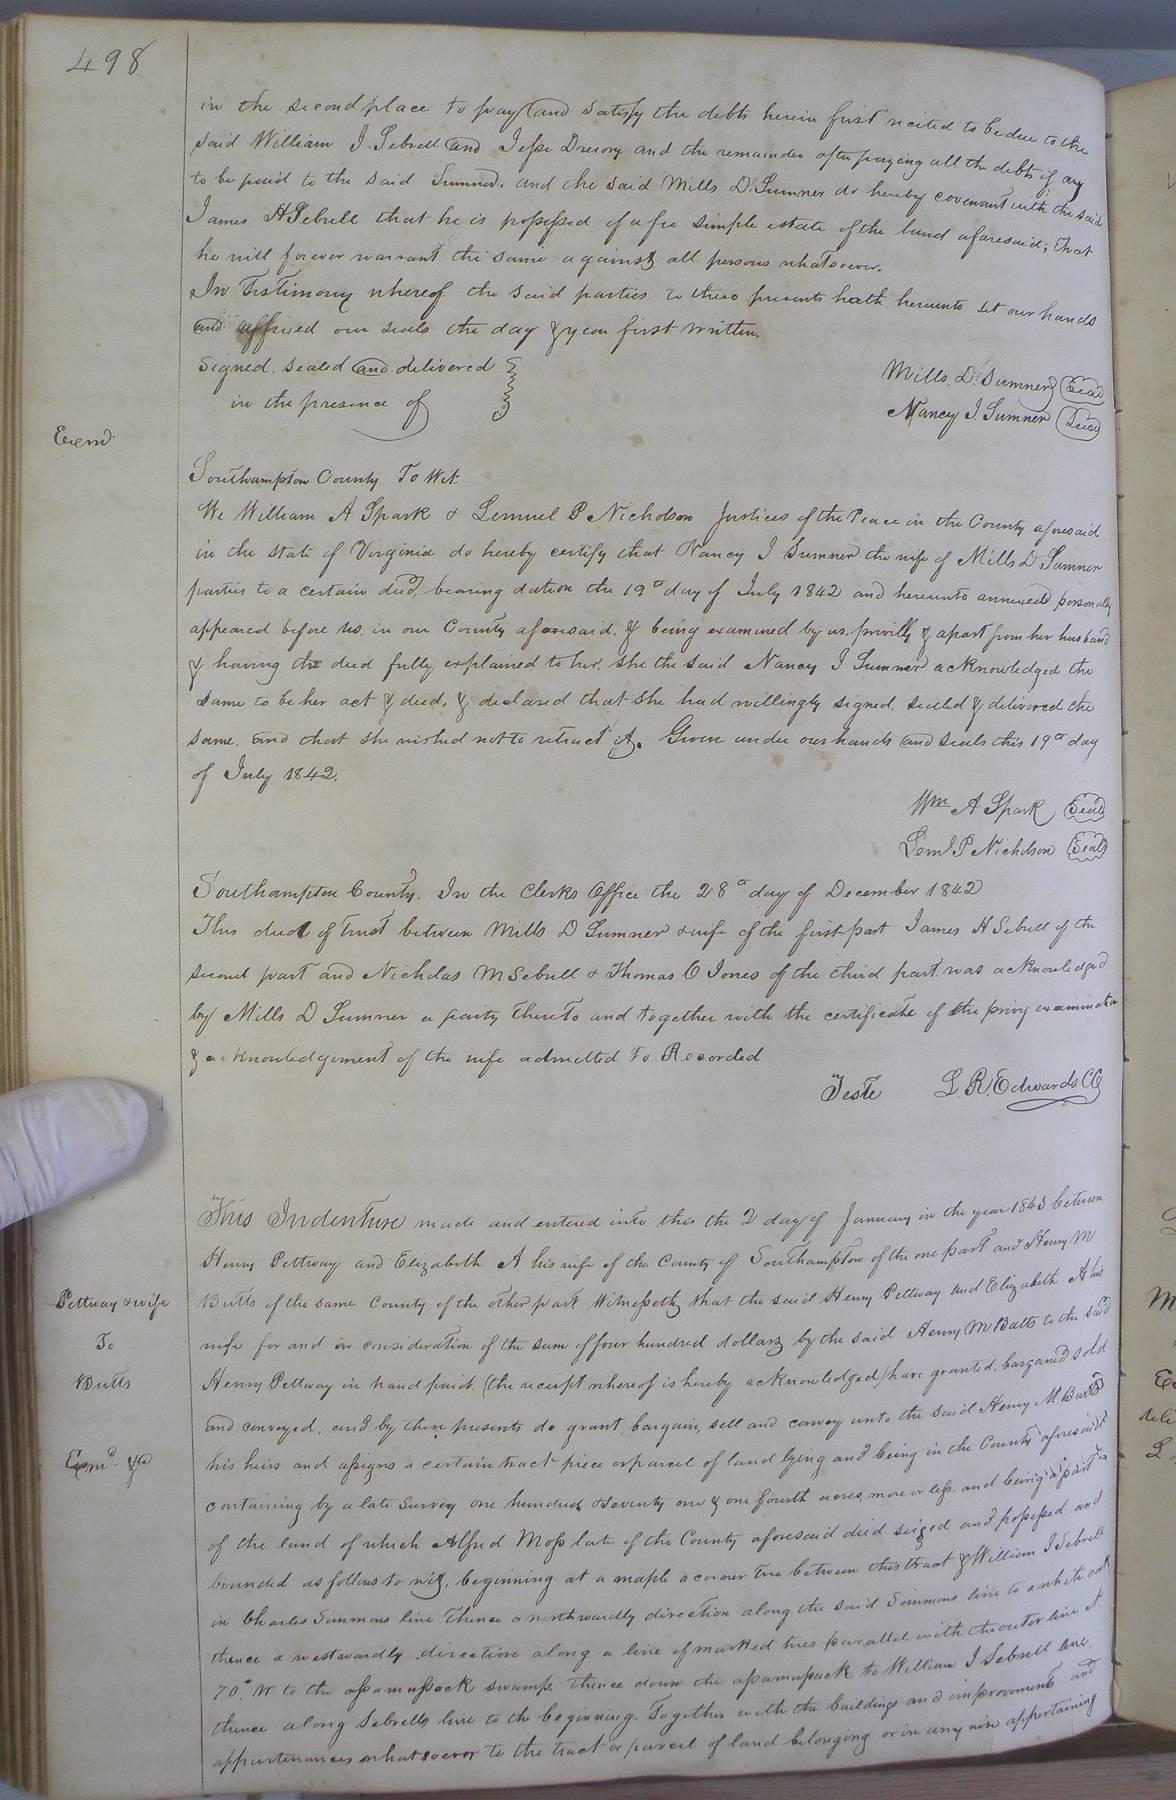 498
in the second place to pay and satisfy the debts herein first recited to be due to the
said William J. Sebrell and Jesse Drewry and the remainder after paying all the debts if any
to be paid to the said Sumner. and the said Mills D. Sumner do hereby covenant with the said
James H Sebrell that he is possessed of a fee simple estate of the land aforesaid; that
he will forever warrant the same against all persons whatsoever.
In Testimony whereof the said parties to these presents hath hereunto set our hands
and affixed our seals the day & year first written.
Signed. sealed and delivered
in the presence of
Mills. D. Sumner Seal
Nancy J. Sumner Seal
Southampton County To Wit.
We William A Spark & Lemuel P Nicholson Justices of the Peace in the County aforesaid
in the state of Virginia do hereby certify that Nancy J Sumner the wife of Mills D Sumner
parties to a certain deed, bearing dation the 19th day of July 1842 and hereunto annexed personally
appeared before us. in our County aforesaid. & being examined by us. privilly & apart from her husband
& having the deed fully explained to her, she the said Nancy J Sumner acknowledged the
same to be her act & deed, & declared that she had willingly signed, sealed & delivered the
same. and that she wished not to retract it. Given under our hands and seals this 19th day
of July 1842.
Wm A Spark Seal
Leml P Nicholson Seal
Southampton County. In the Clerks Office the 28th day of December 1842
This deed of trust between Mills D Sumner & wife of the first part James H Sebrell of the
second part and Nicholas M Sebrell & Thomas C Jones of the third part was acknowledged
by Mills D Sumner a party thereto and together with the certificate of the privy examination
& acknowledgement of the wife admitted to Recorded
Teste L. R. Edwards CC
This Indenture made and entered into this the 2 day of January in the year 1843 between
Henry Pettway and Elizabeth A his wife of the County of Southampton of the one part and Henry M
Pettway & wife
To
Butts
Butts of the same County of the other part Witnesseth that the said Henry Pettway and Elizabeth A his
wife for and in consideration of the sum of four hundred dollars by the said Henry M Butts to the said
Henry Pettway in hand paid. (the receipt whereof is hereby acknowledged) have granted. bargained sold
and conveyed, and by these presents do grant, bargain, sell and convey unto the said Henry M Butts
his heirs and assigns a certain tract piece or parcel of land lying and being in the County aforesaid
containing by a late Survey one hundred & seventy one & one fourth acres, more or less. and being a part
of the land of which Alfred Moss late of the County aforesaid died seized and possessed and
bounded as follows to wit, beginning at a maple a corner tree between this tract & William J Sebrells
in Charles Simmons line Thence a northwardly direction along the said Simmons line to a white oak,
thence a westwardly direction along a line of marked trees parallel with the outer line
70° W to the assamusock swamp. Thence down the assamusack to William J Sebrell line,
thence along Sebrells line to the beginning. Together with the buildings and improvements and
appurtenances whatsoever to the tract or parcel of land belonging or in any wise appertaining